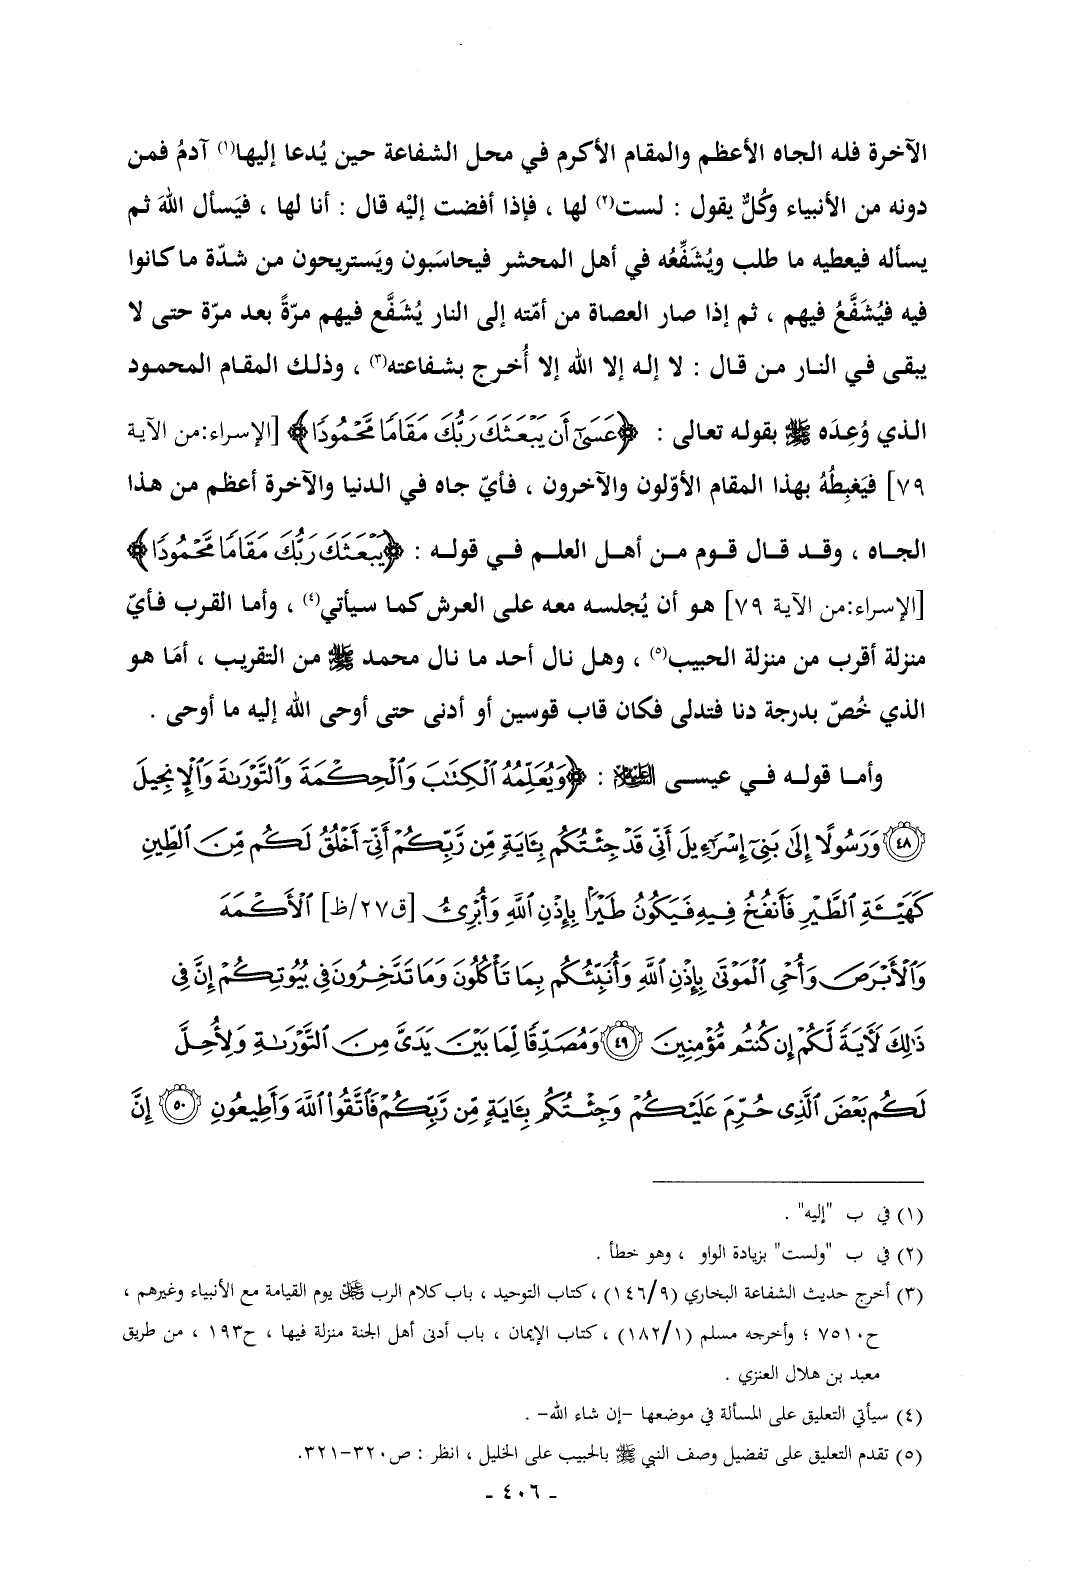 الآخرة فله الجاه الأعظم والمقام الأكرم في محل الشفاعة حين يُدعا إليها(١) آدمُ فمن
دونه من الأنبياء وكُلٌّ يقول : لست(٢) لها ، فإذا أفضت إليْه قال : أنا لها ، فيَسأل اللهَ ثم
يسأله فيعطيه ما طلب ويُشَفِّعُه في أهل المحشر فيحاسَبون ويَستريحون من شدّة ما كانوا
فيه فيُشَفَّعُ فيهم ، ثم إذا صار العصاة من أمّته إلى النار يُشفَّع فيهم مرّةً بعد مرّة حتى لا
يبقى في النار من قال : لا إله إلا الله إلا أُخرج بشفاعته(٣) ، وذلك المقام المحمود
الذي وُعِدَه ﷺ بقوله تعالى : ﴿عَسَىٰٓ أَن يَبۡعَثَكَ رَبُّكَ مَقَامٗا مَّحۡمُودٗا﴾ [الإسراء:من الآية
٧٩] فيَغبِطُهُ بهذا المقام الأوّلون والآخرون ، فأيّ جاه في الدنيا والآخرة أعظم من هذا
الجاه ، وقد قال قوم من أهل العلم في قوله : ﴿يَبۡعَثَكَ رَبُّكَ مَقَامٗا مَّحۡمُودٗا﴾
[الإسراء:من الآية ٧٩] هو أن يُجلسه معه على العرش كما سيأتي(٤) ، وأما القرب فأيّ
منزلة أقرب من منزلة الحبيب(٥) ، وهل نال أحد ما نال محمد ﷺ من التقريب ، أمَا هو
الذي خُصّ بدرجة دنا فتدلى فكان قاب قوسين أو أدنى حتى أوحى الله إليه ما أوحى .
وأما قوله في عيسى عليه السلام : ﴿وَيُعَلِّمُهُ ٱلۡكِتَٰبَ وَٱلۡحِكۡمَةَ وَٱلتَّوۡرَىٰةَ وَٱلۡإِنجِيلَ
٤٨ وَرَسُولًا إِلَىٰ بَنِيٓ إِسۡرَٰٓءِيلَ أَنِّي قَدۡ جِئۡتُكُم بِـَٔايَةٖ مِّن رَّبِّكُمۡ أَنِّيٓ أَخۡلُقُ لَكُم مِّنَ ٱلطِّينِ
كَهَيۡـَٔةِ ٱلطَّيۡرِ فَأَنفُخُ فِيهِ فَيَكُونُ طَيۡرَۢا بِإِذۡنِ ٱللَّهِ وَأُبۡرِئُ [ق٢٧/ظ] ٱلۡأَكۡمَهَ
وَٱلۡأَبۡرَصَ وَأُحۡيِ ٱلۡمَوۡتَىٰ بِإِذۡنِ ٱللَّهِ وَأُنَبِّئُكُم بِمَا تَأۡكُلُونَ وَمَا تَدَّخِرُونَ فِي بُيُوتِكُمۡ إِنَّ فِي
ذَٰلِكَ لَأٓيَةٗ لَّكُمۡ إِن كُنتُم مُّؤۡمِنِينَ ٤٩ وَمُصَدِّقٗا لِّمَا بَيۡنَ يَدَيَّ مِنَ ٱلتَّوۡرَىٰةِ وَلِأُحِلَّ
لَكُم بَعۡضَ ٱلَّذِي حُرِّمَ عَلَيۡكُمۡ وَجِئۡتُكُم بِـَٔايَةٖ مِّن رَّبِّكُمۡ فَٱتَّقُواْ ٱللَّهَ وَأَطِيعُونِ ٥٠ إِنَّ
(١) في ب "إليه" .
(٢) في ب "ولست" بزيادة الواو ، وهو خطأ .
(٣) أخرج حديث الشفاعة البخاري (١٤٦/٩) ، كتاب التوحيد ، باب كلام الرب ﷻ يوم القيامة مع الأنبياء وغيرهم ،
ح٧٥١٠ ؛ وأخرجه مسلم (١٨٢/١) ، كتاب الإيمان ، باب أدنى أهل الجنة منزلة فيها ، ح١٩٣ ، من طريق
معبد بن هلال العنزي .
(٤) سيأتي التعليق على المسألة في موضعها -إن شاء الله- .
(٥) تقدم التعليق على تفضيل وصف النبي ﷺ بالحبيب على الخليل ، انظر : ص٣٢٠-٣٢١.
- ٤٠٦ -